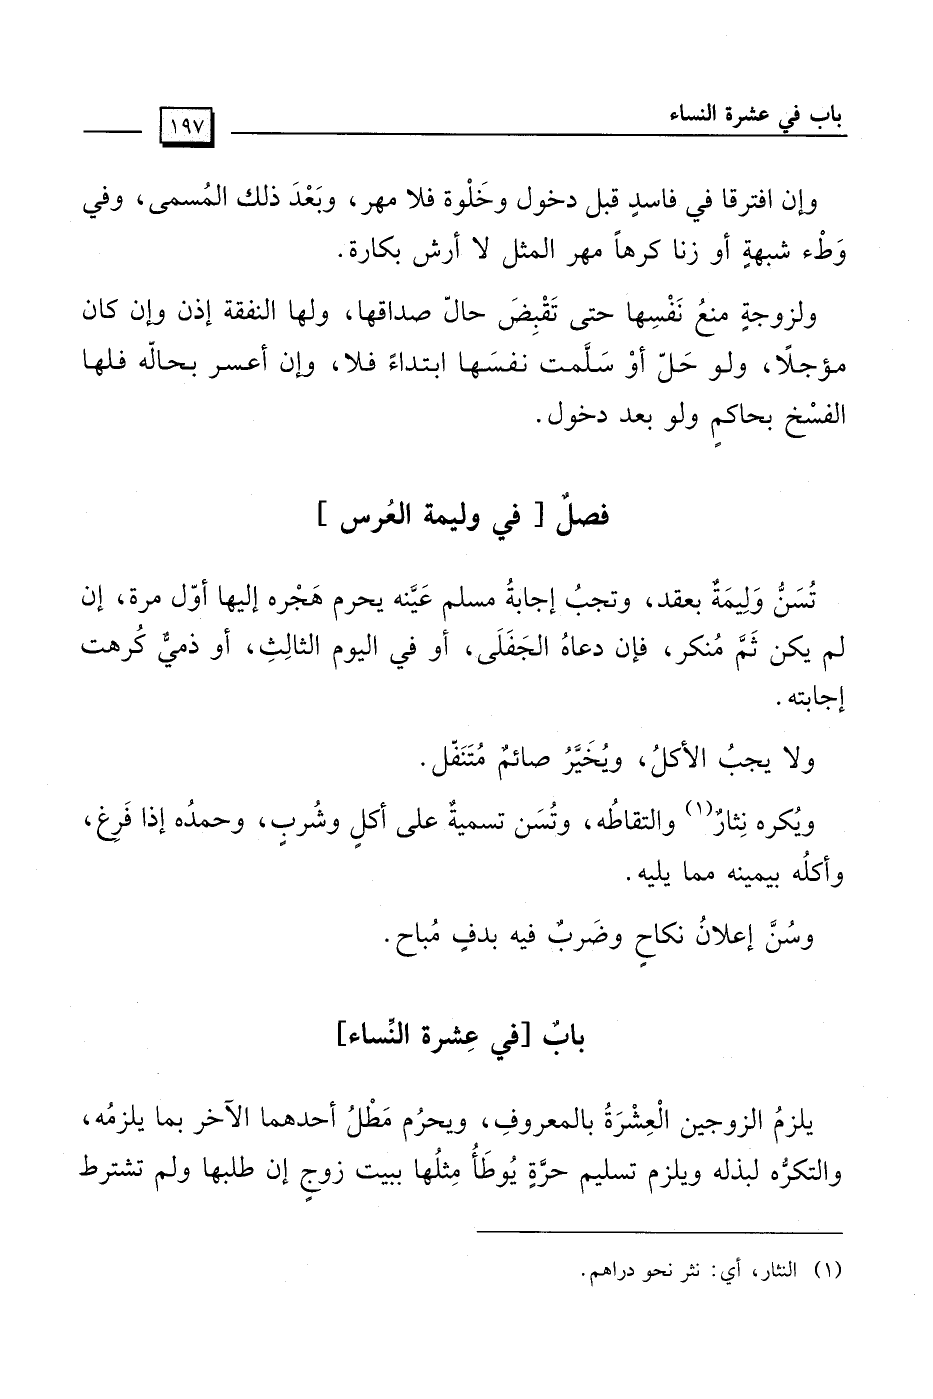 باب في عشرة النساء
١٩٧
وإن افترقا في فاسدٍ قبل دخول وخَلْوة فلا مهر، وبَعْدَ ذلك المُسمى، وفي
وَطْء شبهةٍ أو زنا كرهاً مهر المثل لا أرش بكارة.
ولزوجةٍ منعُ نَفْسِها حتى تَقْبِضَ حالّ صداقها، ولها النفقة إذن وإن كان
مؤجلًا، ولو حَلّ أوْ سَلَّمت نفسَها ابتداءً فلا، وإن أعسر بحالّه فلها
الفسْخ بحاكمٍ ولو بعد دخول.
فصلٌ [ في وليمة العُرس ]
تُسَنُّ وَلِيمَةٌ بعقد، وتجبُ إجابةُ مسلم عَيَّنه يحرم هَجْره إليها أوّل مرة، إن
لم يكن ثَمَّ مُنكر، فإن دعاهُ الجَفَلَى، أو في اليوم الثالِثِ، أو ذميٌّ كُرهت
إجابته.
ولا يجبُ الأكلُ، ويُخَيَّرُ صائمٌ مُتَنَفّل.
ويُكره نِثارٌ(١) والتقاطُه، وتُسَن تسميةٌ على أكلٍ وشُربٍ، وحمدُه إذا فَرِغ،
وأكلُه بيمينه مما يليه.
وسُنَّ إعلانُ نكاحٍ وضَربٌ فيه بدفٍ مُباح.
بابٌ [في عِشرة النِّساء]
يلزمُ الزوجين الْعِشْرَةُ بالمعروفِ، ويحرُم مَطْلُ أحدهما الآخر بما يلزمُه،
والتكرُّه لبذله ويلزم تسليم حرَّةٍ يُوطَأُ مِثلُها ببيت زوجٍ إن طلبها ولم تشترط
(١) النثار، أي: نثر نحو دراهم.